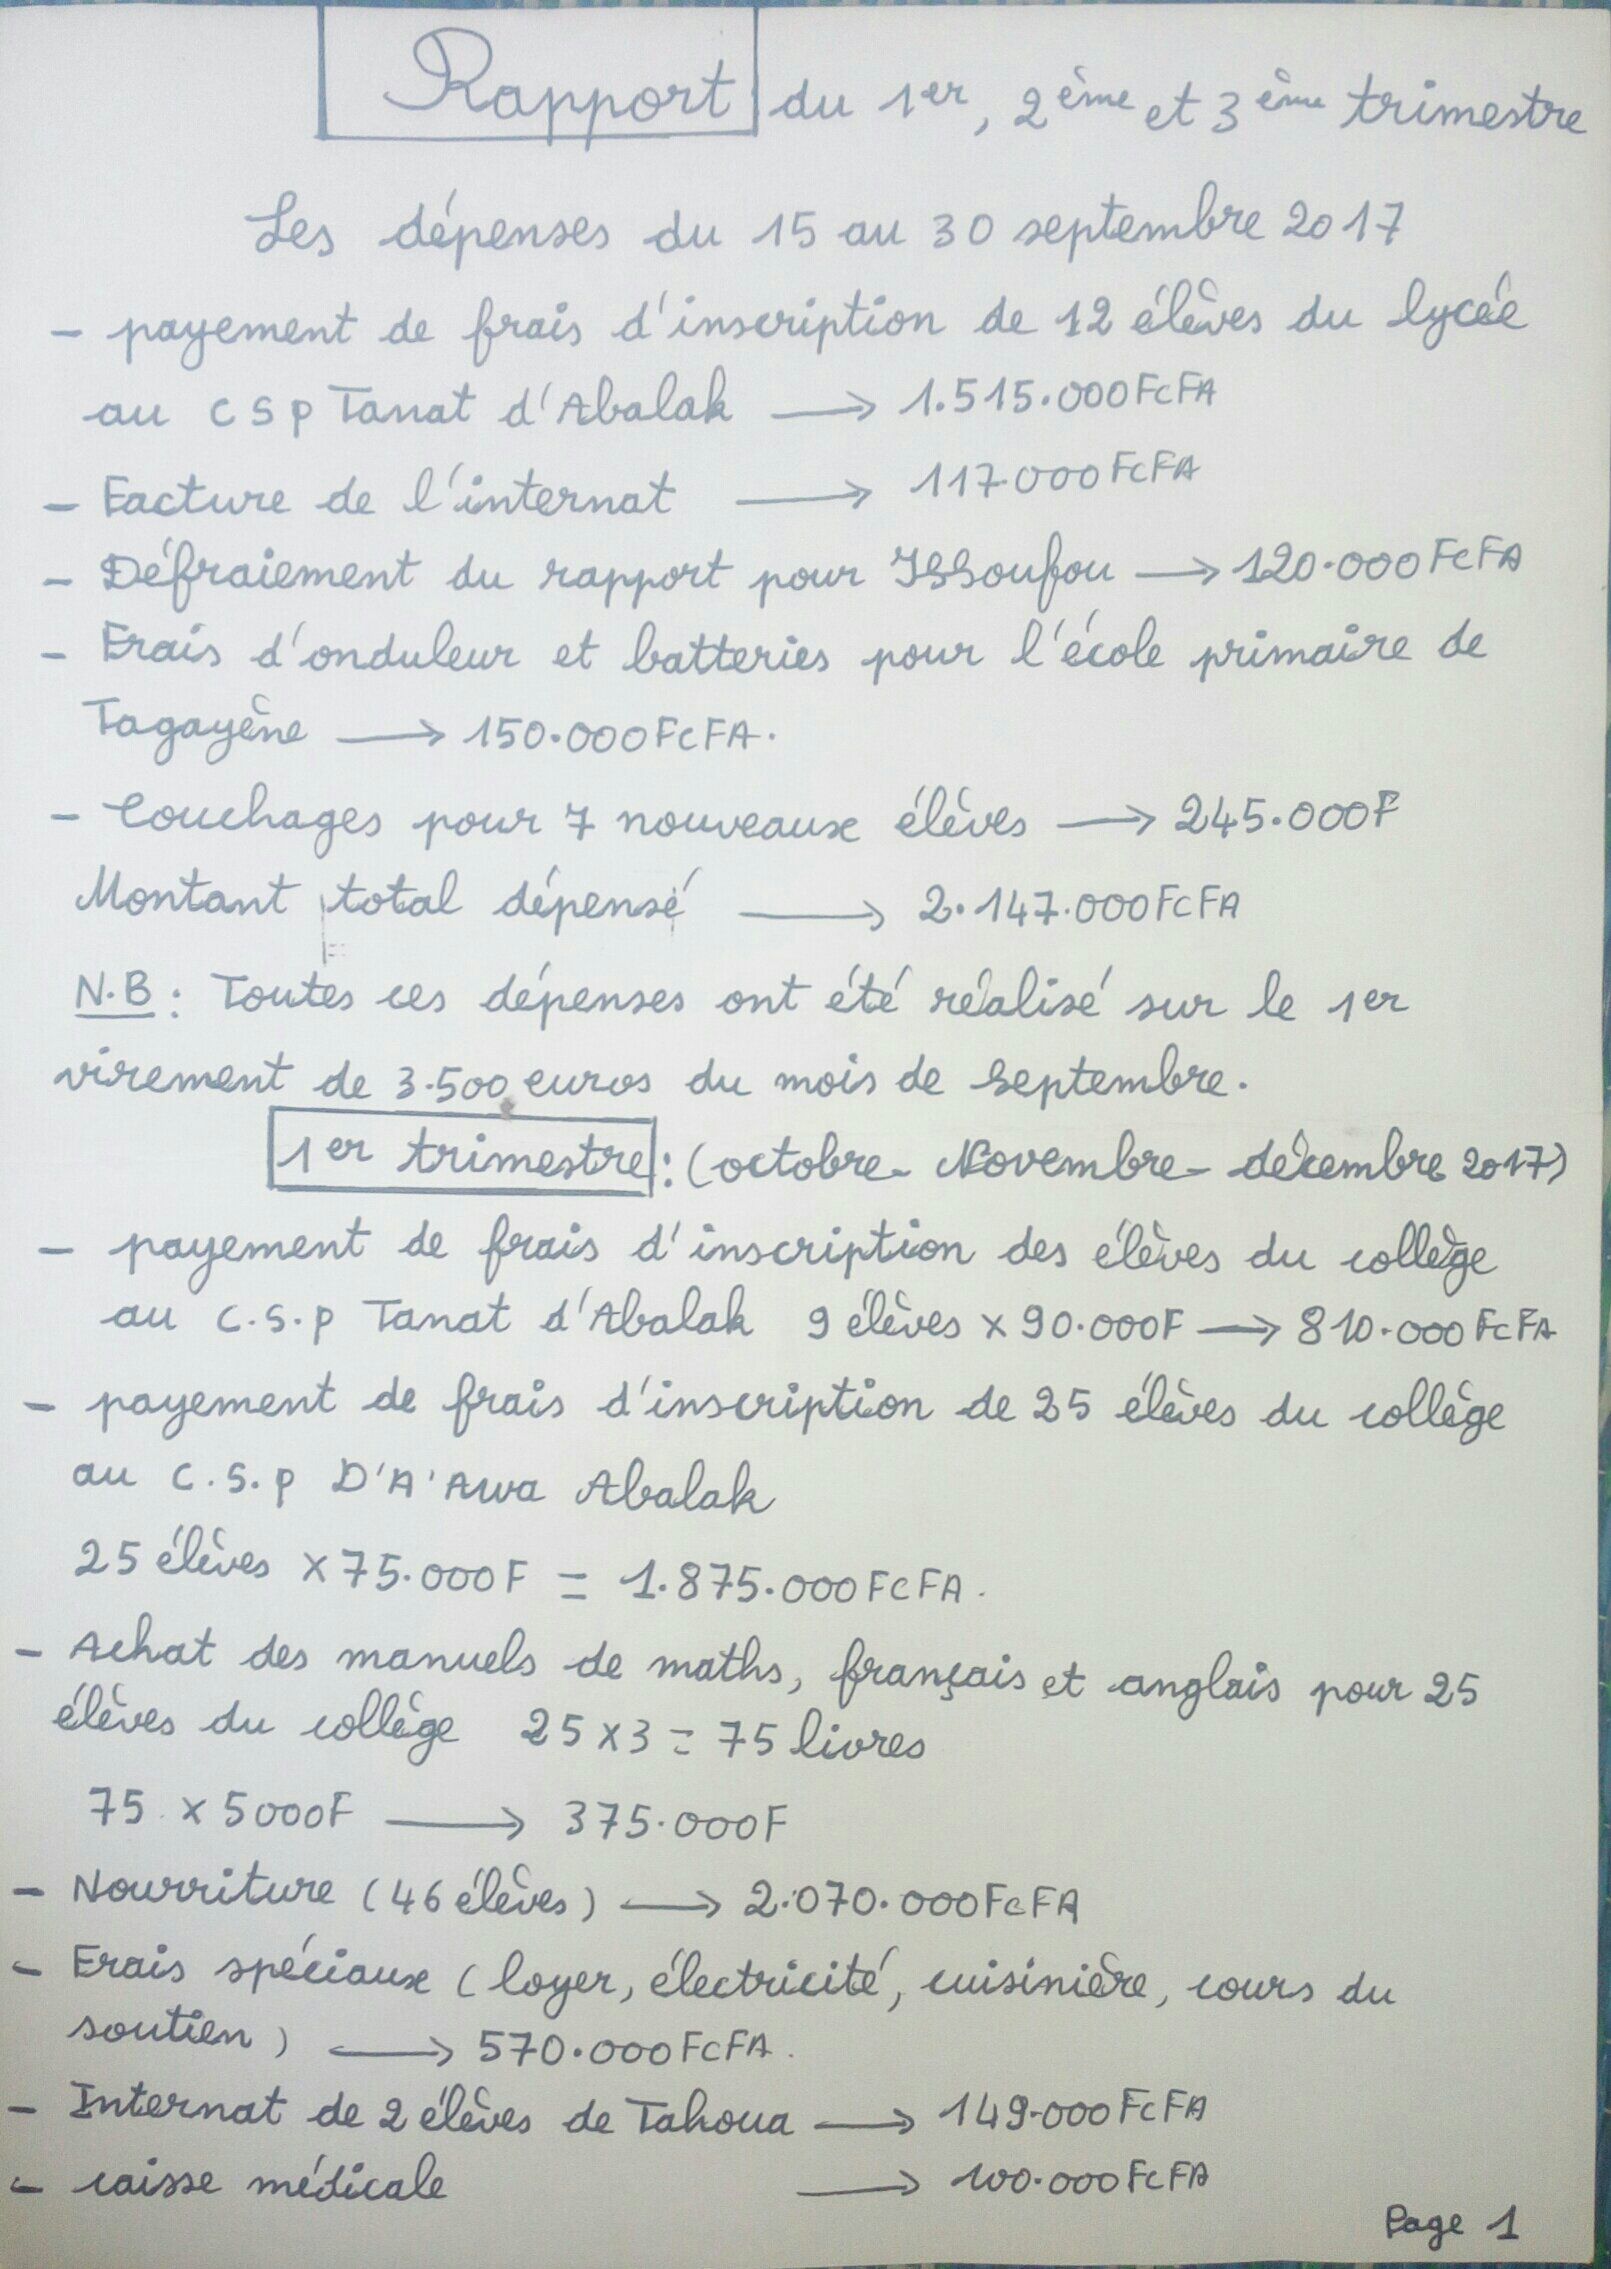 Rapport du 1er, 2ème et 3ème trimestre
Les dépenses du 15 au 30 septembre 2017
- payement de frais d'inscription de 12 élèves du lycée
au CSP Tanat d'Abalak → 1.515.000FCFA
- Facture de l'internat → 117.000FCFA
- Défraiement du rapport pour Issoufou → 120.000FCFA
- Frais d'onduleur et batteries pour l'école primaire de
Tagayène → 150.000FCFA.
- Couchages pour 7 nouveaux élèves → 245.000F
Montant total dépensé → 2.147.000FCFA
N.B : Toutes ces dépenses ont été réalisé sur le 1er
virement de 3.500 euros du mois de septembre.
1er trimestre : (octobre - Novembre - décembre 2017)
- payement de frais d'inscription des élèves du collège
au C.S.P Tanat d'Abalak 9 élèves x 90.000F → 810.000FCFA
- payement de frais d'inscription de 25 élèves du collège
au C.S.P D'A'Awa Abalak
25 élèves x 75.000F = 1.875.000FCFA.
- Achat des manuels de maths, français et anglais pour 25
élèves du collège 25 x 3 = 75 livres
75 x 5000F → 375.000F
- Nourriture (46 élèves) → 2.070.000FCFA
- Frais spéciaux (loyer, électricité, cuisinière, cours du
soutien) → 570.000FCFA.
- Internat de 2 élèves de Tahoua → 149.000FCFA
- caisse médicale → 100.000FCFA
Page 1